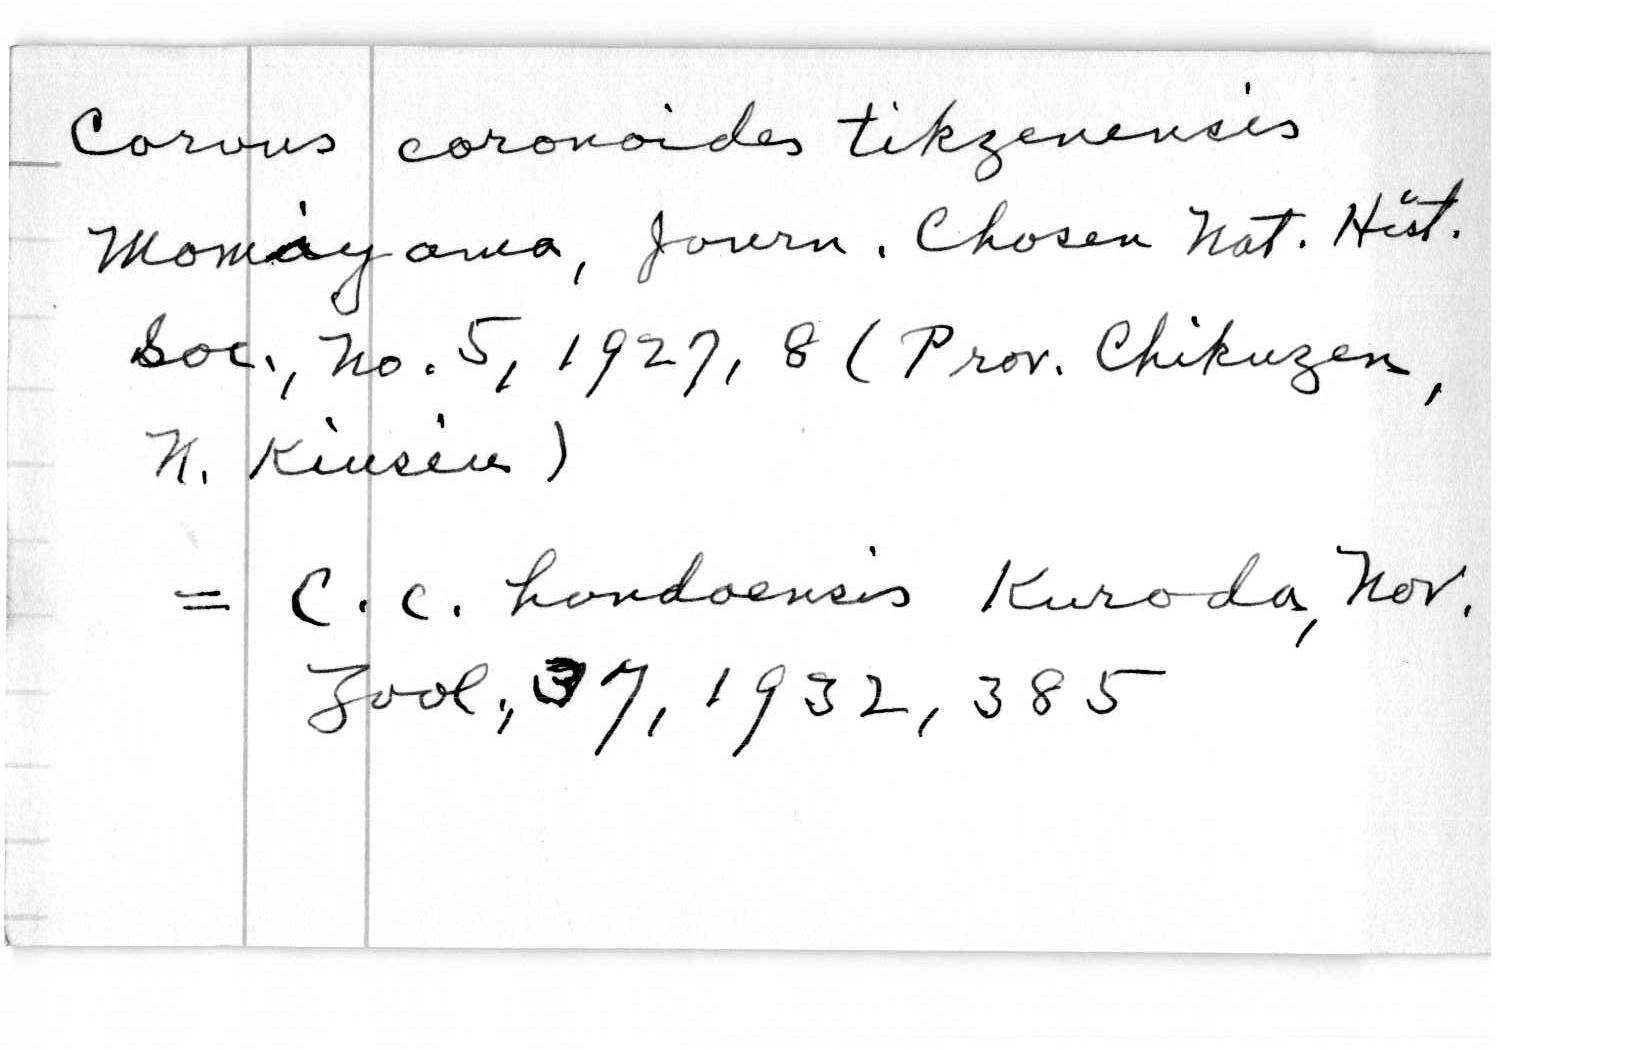 Corvus coronoides tikzenensis
Momiyama, Journ. Chosen Nat. Hist.
Soc., No. 5, 1927, 8 (Prov. Chikuzen,
N. Kiusiu)
= C. c. hondoensis Kuroda, Nov.
Zool., 37, 1932, 385